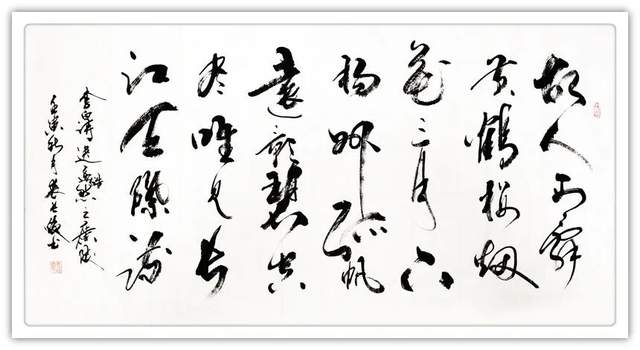 故人西辞
黄鶴楼烟
花三月下
扬州孤帆
遠影碧空
尽唯见长
江天際流
李白诗送孟浩然之廣陵